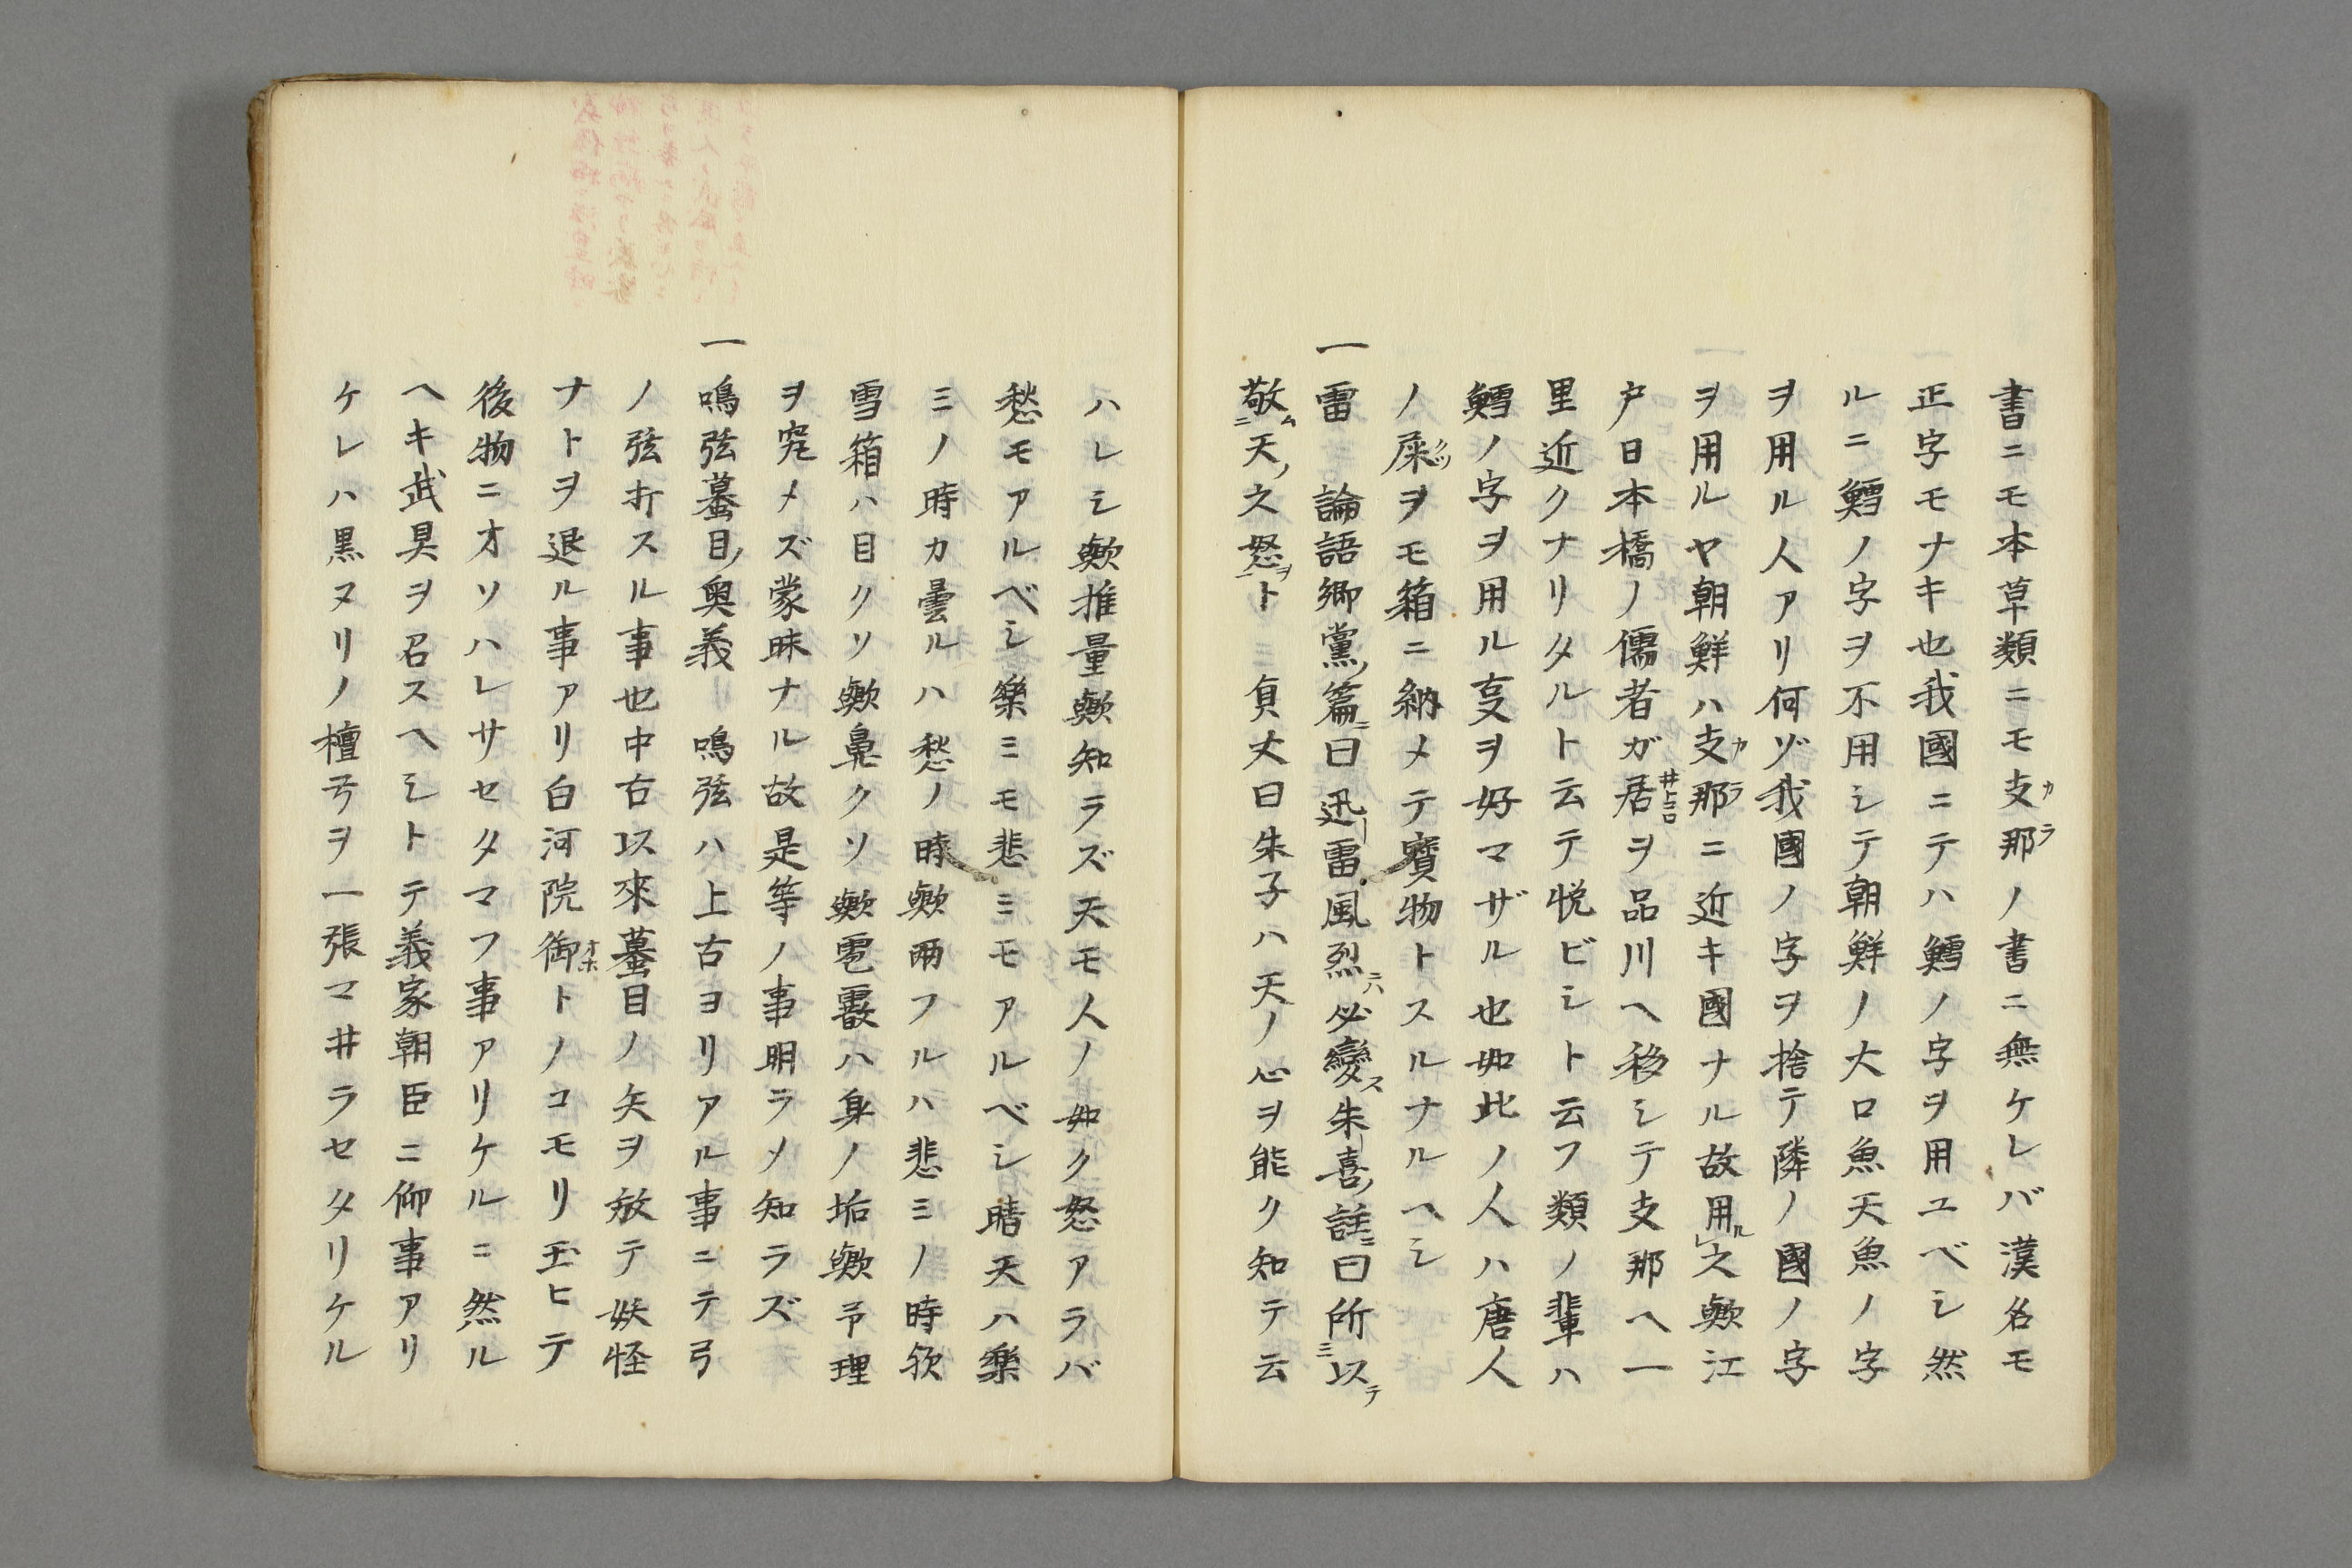 書ニモ本草類ニモ支那ノ書ニ無ケレバ漢名モ
正字モナキ也我國ニテハ鱈ノ字ヲ用ユベシ然
ルニ鱈ノ字ヲ不用シテ朝鮮ノ大口魚天魚ノ字
ヲ用ル人アリ何ゾ我國ノ字ヲ捨テ隣ノ國ノ字
ヲ用ルヤ朝鮮ハ支那ニ近キ國ナル故用ル之歟江
戸日本橋ノ儒者ガ居ヲ品川へ移シテ支那へ一
里近クナリタルト云テ悦ビシト云フ類ノ輩ハ
鱈ノ字ヲ用ル叓ヲ好マザル也如此ノ人ハ唐人
ノ屎ヲモ箱ニ納メテ寳物トスルナルヘシ
一雷 論語郷黨ノ篇ニ曰迅雷風烈ニハ必變ス朱喜ノ註ニ曰所以テ
敬ム天ノ之怒ヲト三貞丈曰朱子ハ天ノ心ヲ能ク知テ云
ハレシ歟推量歟知ラズ天モ人ノ如ク怒アラバ
愁モアルベシ樂ミモ悲ミモアルベシ晴天ハ樂
ミノ時カ曇ルハ愁ノ時歟雨フルハ悲ミノ時欤
雪箱ハ目クソ歟鼻クソ歟雹霰ハ身ノ垢歟予理
ヲ究メズ蒙昧ナル故是等ノ事明ラメ知ラズ
一鳴弦蟇目ノ奥義 鳴弦ハ上古ヨリアル事ニテ弓
ノ弦打スル事也中右以來蟇目ノ矢ヲ放テ妖怪
ナトヲ退ル事アリ白河院御トノコモリ玉ヒテ
後物ニオソハレサセタマフ事アリケルニ然ル
ヘキ武具ヲ召スヘシトテ義家朝臣ニ仰事アリ
ケレハ黒ヌリノ檀弓ヲ一張マ井ラセタリケル